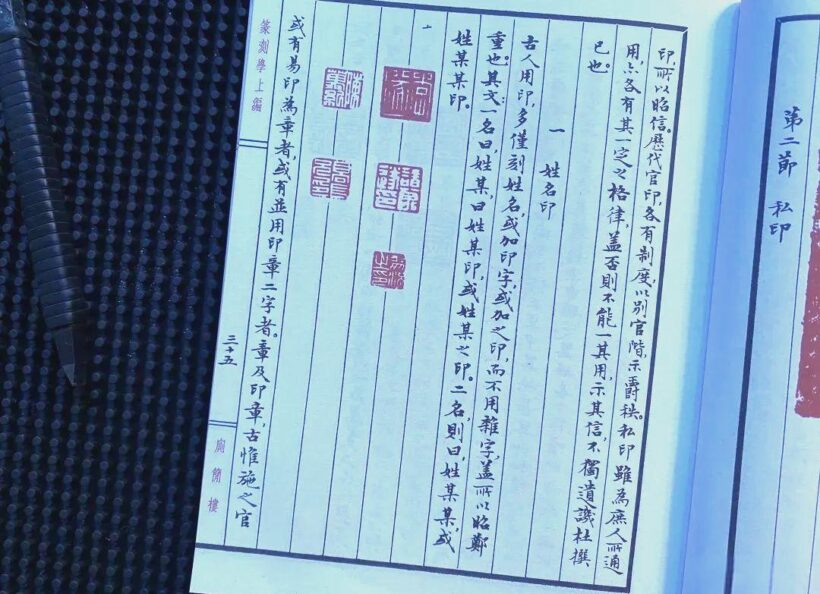 第二節　私印
印，所以昭信。歷代官印，各有制度，以別官階，示爵秩。私印雖為庶人所通
用，亦各有其一定之格律，蓋否則不能一其用，示其信，不獨遺譏杜撰
已也。
一　姓名印
古人用印，多僅刻姓名，或加印字，或加之印，而不用雜字，蓋所以昭鄭
重也。其文一名曰，姓某，曰姓某印，或姓某之印。二名，則曰，姓某某，或
姓某某印。
或有易印為章者，或有並用印章二字者。章及印章，古惟施之官
篆刻學上編
三十五